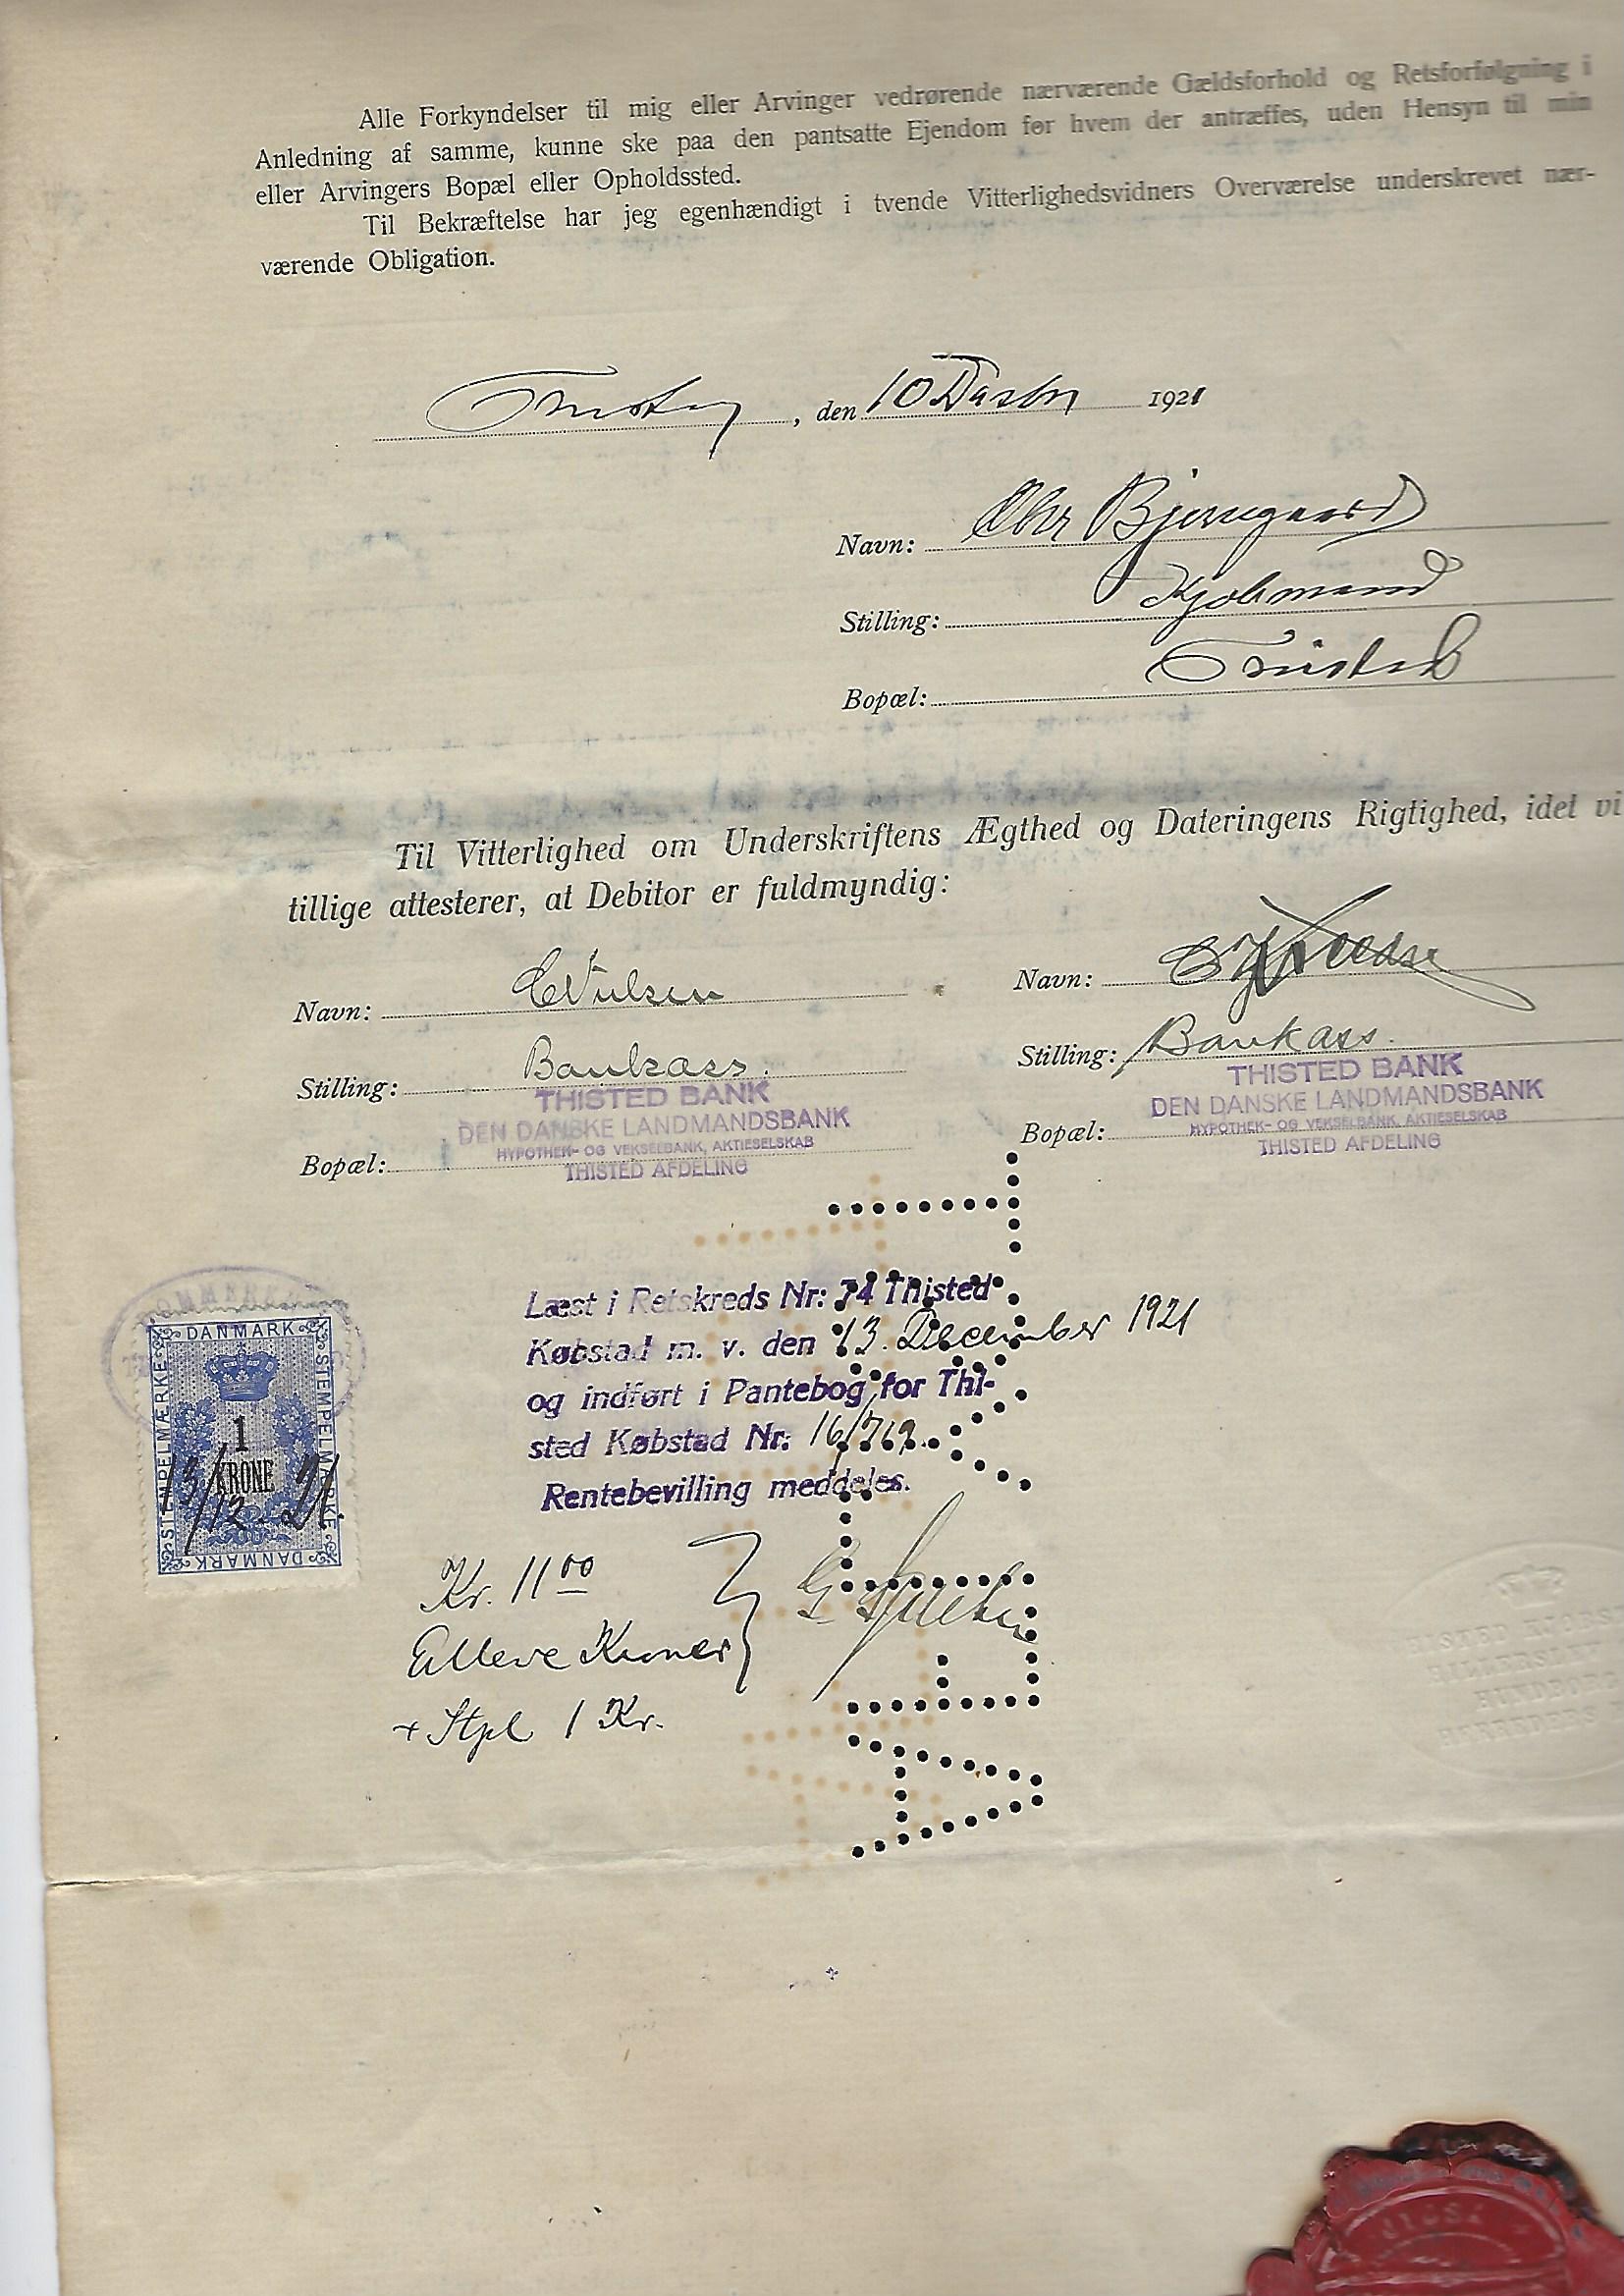 Alle Forkyndelser til mig eller Arvinger vedrørende nærværende Gældsforhold og Retsforfølgning i
Anledning af samme, kunne ske paa den pantsatte Ejendom for hvem der antræffes, uden Hensyn til min
eller Arvingers Bopæl eller Opholdssted.
Til Bekræftelse har jeg egenhændigt i tvende Vitterlighedsvidners Overværelse underskrevet nær-
værende Obligation.
, den 10 1921
Navn: Chr Bjerregaard
Stilling: Kjøbmand
Bopæl: Thisted
Til Vitterlighed om Underskriftens Ægthed og Dateringens Rigtighed, idet vi
tillige attesterer, at Debitor er fuldmyndig:
Navn:
Navn:
Stilling: Bankass.
Stilling: Bankass.
THISTED BANK
DEN DANSKE LANDMANDSBANK
HYPOTHEK- OG VEKSELBANK, AKTIESELSKAB
THISTED AFDELING
Bopæl:
THISTED BANK
DEN DANSKE LANDMANDSBANK
HYPOTHEK- OG VEKSELBANK, AKTIESELSKAB
THISTED AFDELING
Bopæl:
Læst i Retskreds Nr: 74 Thisted
Købstad m. v. den 13. December 1921
og indført i Pantebog for Thi-
sted Købstad Nr: 16/719.
Rentebevilling meddeles.
DANMARK
STEMPELMÆRKE
STEMPELMÆRKE
1
KRONE
13/12-21.
DANMARK
Kr. 11 00
Elleve Kroner
+ Stpl 1 Kr.